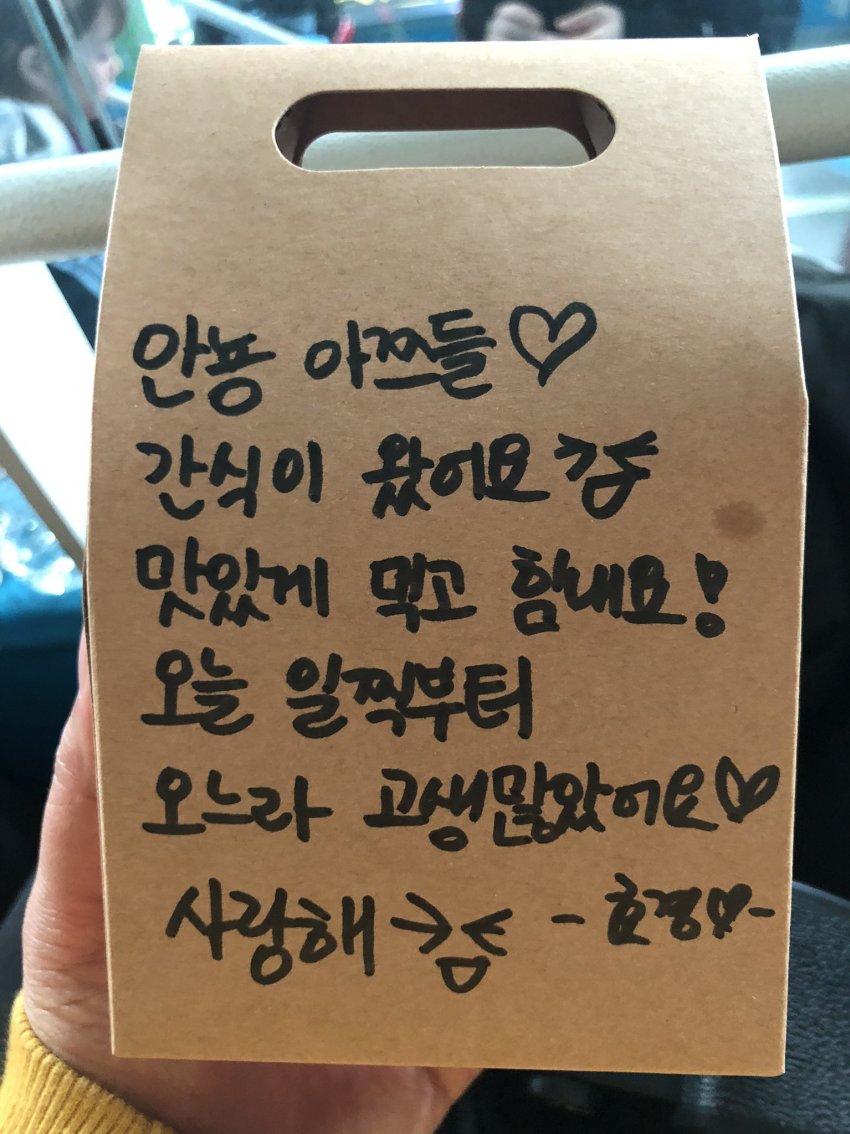 안뇽 아쯔들♡
간식이 왔어요
맛있게 먹고 힘내요!
오늘 일찍부터
오느라 고생많았어요♡
사랑해 - 효경♡-